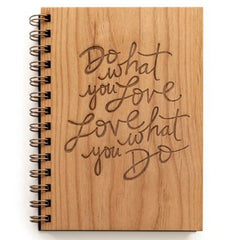 Do
what
you Love
Love what
you Do